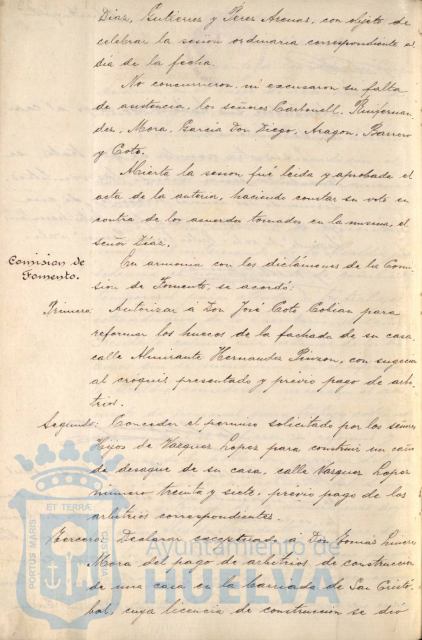 Diaz, Gutierrez y Perez Asensi, con objeto de
celebrar la sesión ordinaria correspondiente al
dia de la fecha.
No concurrieron, ni excusaron su falta
de asistencia, los señores Carbonell,
dez, Mora, Garcia Don Diego, Aragon, Barrero
y Coto.
Abierta la sesion, fué leida y aprobada el
acta de la anterior, haciendo constar su voto en
contra de los acuerdos tomados en la misma, el
señor Díaz.
Comision de
Fomento.
En armonia con los dictámenes de la Comi
sion de Fomento, se acordó:
Primero: Autorizar á Don José Coto Colican para
reformar los huecos de la fachada de su casa
calle Almirante Hernandez Pinzon, con sugecion
al croquis presentado y previo pago de arbi
trios.
Segundo: Conceder el permiso solicitado por los señores
Hijos de Vazquez Lopez para construir un caño
de desagüe de su casa, calle Vazquez Lopez
número treinta y siete, previo pago de los
arbitrios correspondientes.
Tercero: Declarar exceptuado a Don Tomás
Mora del pago de arbitrios, de construccion
de una casa en la barriada de San Cristó
bal, cuya licencia de construccion se dió
PORTUS MARIS ET TERRAE CUSTODIA
Ayuntamiento de
HUELVA